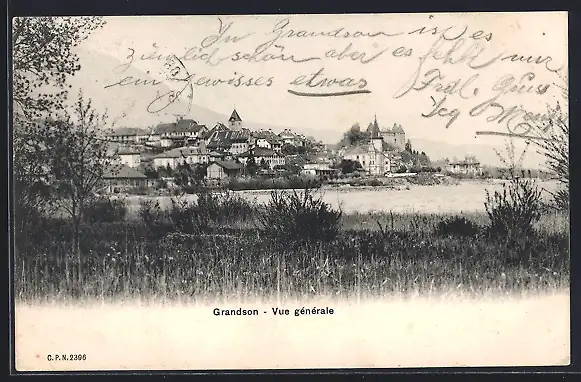 In Grandson is es
ziemlich schön aber es fehlt mir
ein gewisses etwas
Frdl. Gruss
Grandson - Vue générale
C. P. N. 2396